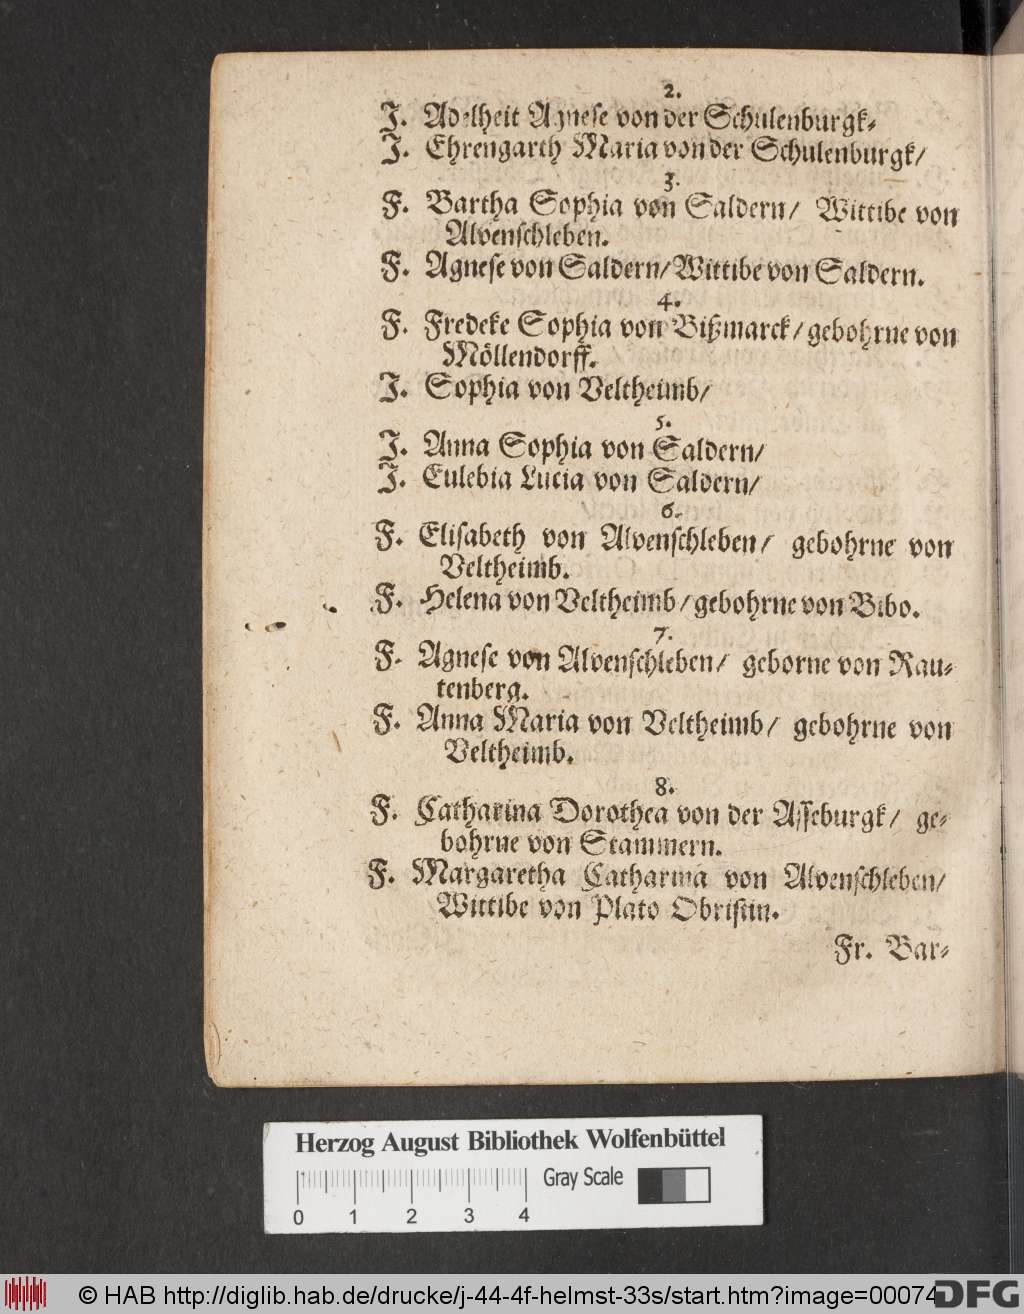 2.
J. Adelheit Agnese von der Schulenburgk⸗
J. Ehrengarth Maria von der Schulenburgk/
3.
F. Bartha Sophia von Saldern/ Wittibe von
Alvenschleben.
F. Agnese von Saldern/ Wittibe von Saldern.
4.
F. Fredeke Sophia von Bißmarck/ gebohrne von
Möllendorff.
J. Sophia von Veltheimb/
5.
J. Anna Sophia von Saldern/
J. Eulebia Lucia von Saldern/
6.
F. Elisabeth von Alvenschleben/ gebohrne von
Veltheimb.
F. Helena von Veltheimb/ gebohrne von Bibo.
7.
F. Agnese von Alvenschleben/ geborne von Rau⸗
tenberg.
F. Anna Maria von Veltheimb/ gebohrne von
Veltheimb.
8.
F. Catharina Dorothea von der Asseburgk/ ge⸗
bohrne von Stammern.
F. Margaretha Catharina von Alvenschleben/
Wittibe von Plato Obristin.
Fr. Bar⸗
Herzog August Bibliothek Wolfenbüttel
Gray Scale
0 1 2 3 4
© HAB http://diglib.hab.de/drucke/j-44-4f-helmst-33s/start.htm?image=00074
DFG